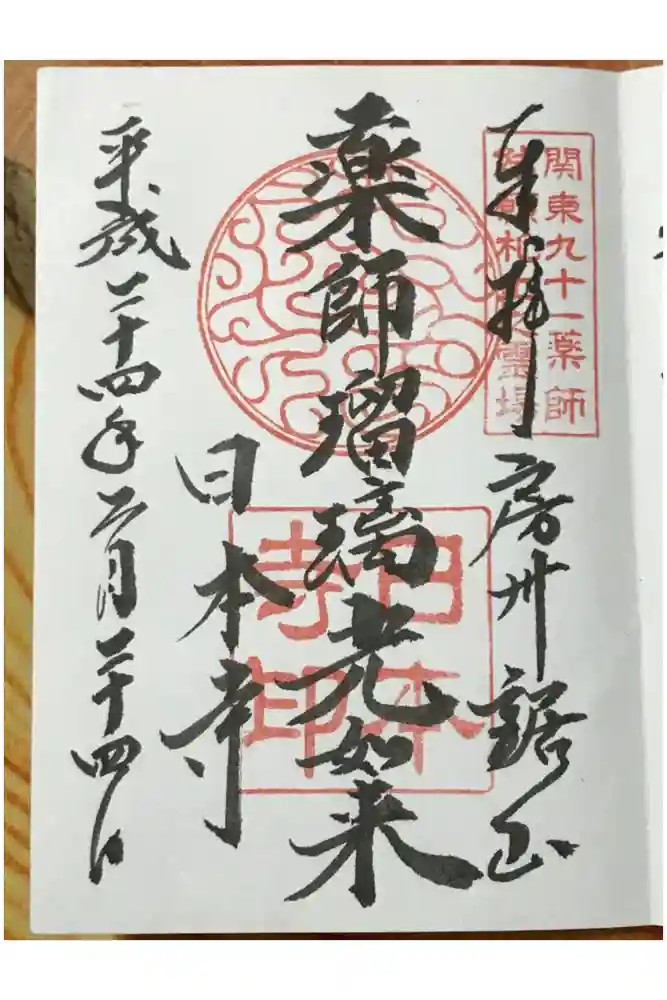 関東九十一薬師
霊場
奉拝
房州鋸山
薬師瑠璃光如来
日本寺
日本寺印
平成二十四年二月二十四日